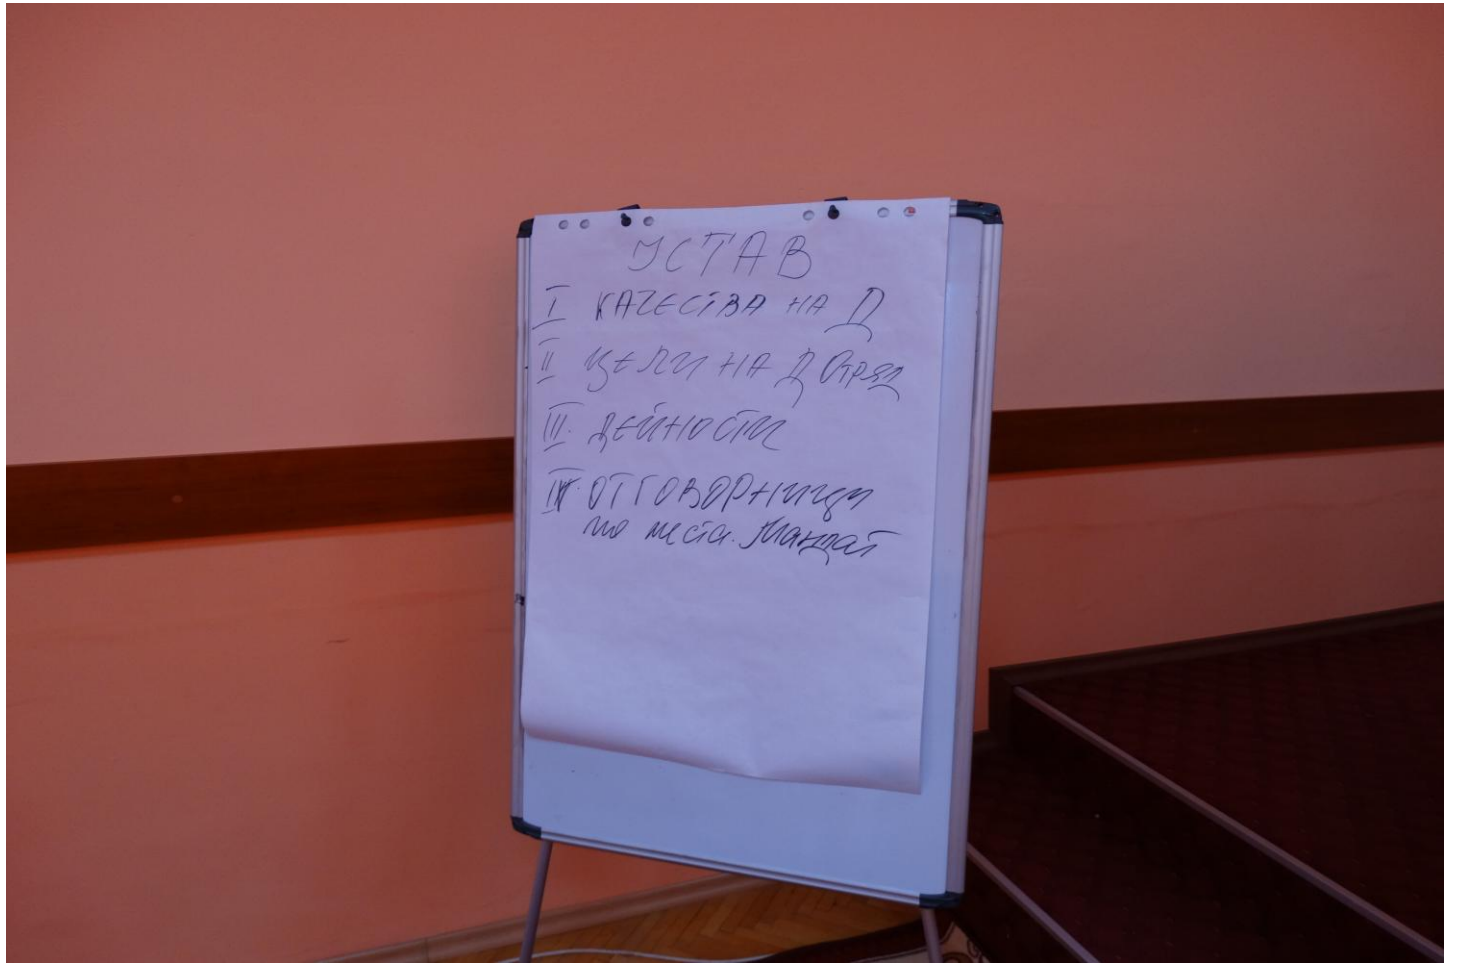 УСТАВ
I КАЧЕСТВА НА Д
II ЦЕЛИ НА Д Отряд
III. ДЕЙНОСТИ
IV. ОТГОВОРНИЦИ
по места. Мандат